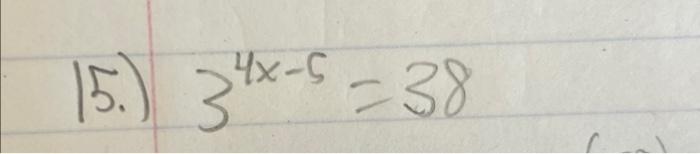 15.) 3^{4x-5} = 38